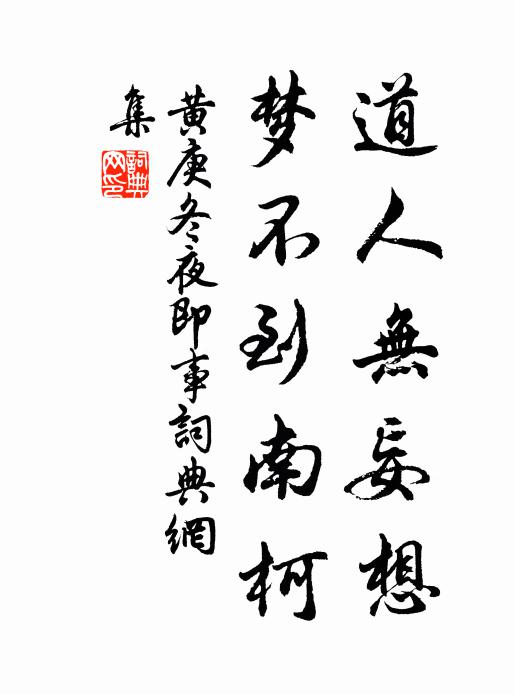 道人無妄想
梦不到南柯
黄庚冬夜即事詞典網
集
詞典
网印